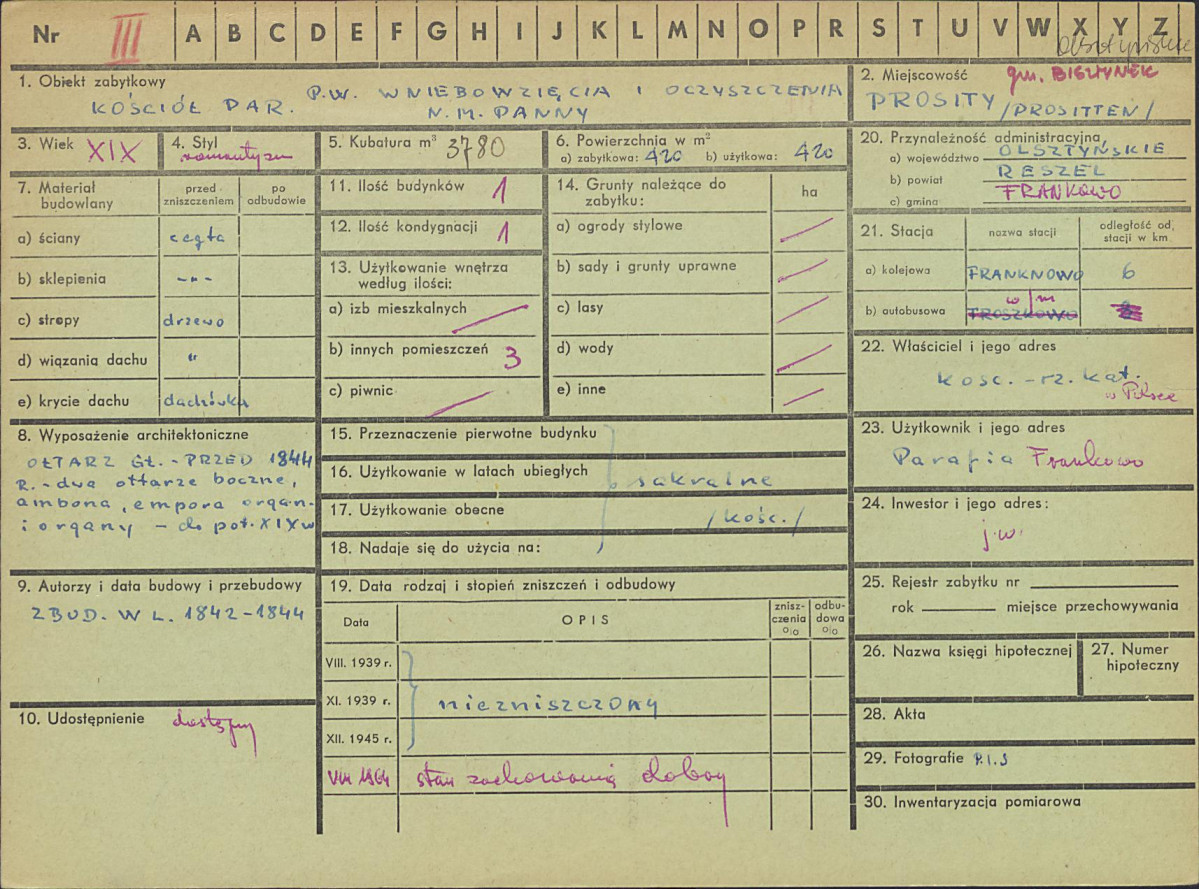 Nr III A B C D E F G H I J K L M N O P R S T U V W X Y Z
Olsztyńskie
1. Obiekt zabytkowy
KOŚCIÓŁ PAR. P.W. WNIEBOWZIĘCIA I OCZYSZCZENIA
N.M. PANNY
2. Miejscowość gm. BISZTYNEK
PROSITY /PROSITTEN/
3. Wiek XIX
4. Styl
romantyzm
5. Kubatura m³ 3780
6. Powierzchnia w m²
a) zabytkowa: 420 b) użytkowa: 420
20. Przynależność administracyjna
a) województwo OLSZTYŃSKIE
b) powiat RESZEL
c) gmina FRANKOWO
7. Materiał budowlany
przed zniszczeniem
po odbudowie
a) ściany cegła
b) sklepienia -"-
c) stropy drzewo
d) wiązania dachu "
e) krycie dachu dachówka
11. Ilość budynków 1
12. Ilość kondygnacji 1
13. Użytkowanie wnętrza
według ilości:
a) izb mieszkalnych
b) innych pomieszczeń 3
c) piwnic
14. Grunty należące do
zabytku:
ha
a) ogrody stylowe
b) sady i grunty uprawne
c) lasy
d) wody
e) inne
21. Stacja
nazwa stacji
odległość od
stacji w km
a) kolejowa FRANKNOWO 6
w/m
b) autobusowa TROSZKOWO
22. Właściciel i jego adres
KOŚC. - RZ. KAT.
w Polsce
8. Wyposażenie architektoniczne
OŁTARZ GŁ. - PRZED 1844
R. - dwa ołtarze boczne,
ambona, empora organ.
i organy - do poł. XIX w
15. Przeznaczenie pierwotne budynku
16. Użytkowanie w latach ubiegłych
sakralne
17. Użytkowanie obecne
/kośc./
18. Nadaje się do użycia na:
23. Użytkownik i jego adres
Parafia Frankowo
24. Inwestor i jego adres:
j.w.
9. Autorzy i data budowy i przebudowy
ZBUD. W L. 1842-1844
19. Data rodzaj i stopień zniszczeń i odbudowy
Data
OPIS
znisz-
czenia
o/o
odbu-
dowa
o/o
VIII. 1939 r.
XI. 1939 r.
niezniszczony
XII. 1945 r.
VIII 1964 stan zachowania dobry
10. Udostępnienie dostępny
25. Rejestr zabytku nr
rok miejsce przechowywania
26. Nazwa księgi hipotecznej
27. Numer
hipoteczny
28. Akta
29. Fotografie P.I.S
30. Inwentaryzacja pomiarowa